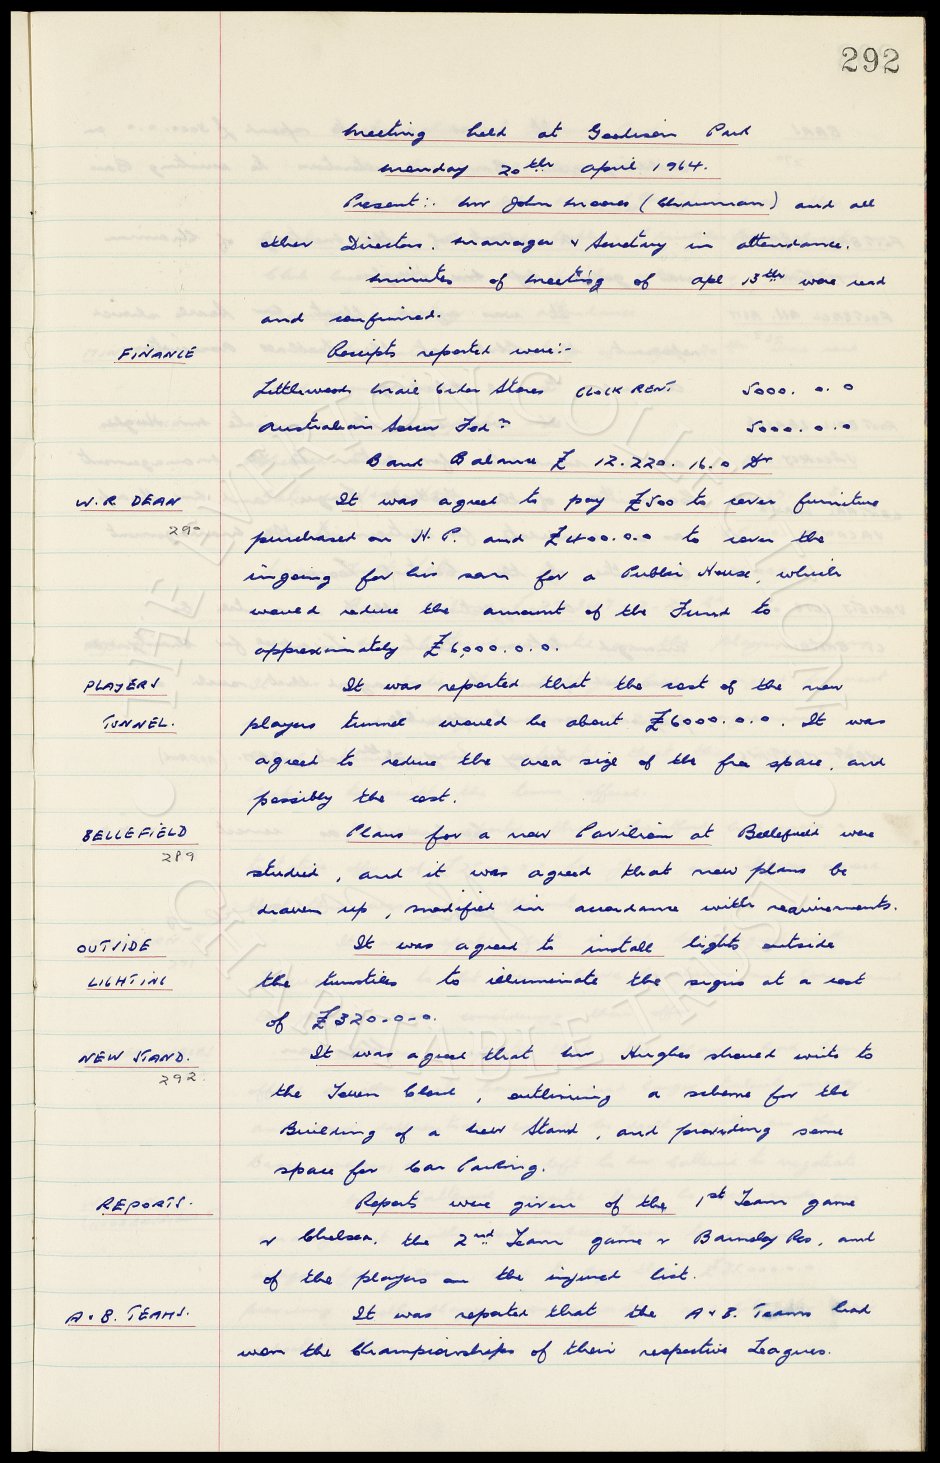 292
Meeting held at Goodison Park
Monday 20th April 1964.
Present:- Mr John Moores (Chairman) and all
other Directors. Manager & Secretary in attendance.
Minutes of meeting of Apl 13th were read
and confirmed.
FINANCE Receipts reported were:-
Littlewoods Mail Order Stores CLOCK RENT. 5000. 0. 0
Australian Soccer Fedn 5000. 0. 0
Bank Balance £ 12.220. 16. 0 Dr
W. R DEAN It was agreed to pay £500 to cover furniture
290 purchased on H. P. and £400.0.0 to cover the
ingoing for his son for a Public House, which
would reduce the amount of the Fund to
approximately £6,000. 0. 0.
PLAYERS It was reported that the cost of the new
TUNNEL. players tunnel would be about £6000. 0. 0. It was
agreed to reduce the area size of the free space, and
possibly the cost.
BELLEFIELD Plans for a new Pavilion at Bellefield were
289 studied, and it was agreed that new plans be
drawn up, modified in accordance with requirements.
OUTSIDE It was agreed to install lights outside
LIGHTING the turnstiles to illuminate the signs at a cost
of £320-0-0.
NEW STAND. It was agreed that Mr Hughes should write to
292. the Town Clerk, outlining a scheme for the
Building of a New Stand, and providing some
space for Car Parking.
REPORTS. Reports were given of the 1st Team game
v Chelsea, the 2nd Team game v Barnsley Res, and
of the players on the injured list.
A & B. TEAMS. It was reported that the A & B. Teams had
won the Championships of their respective Leagues.